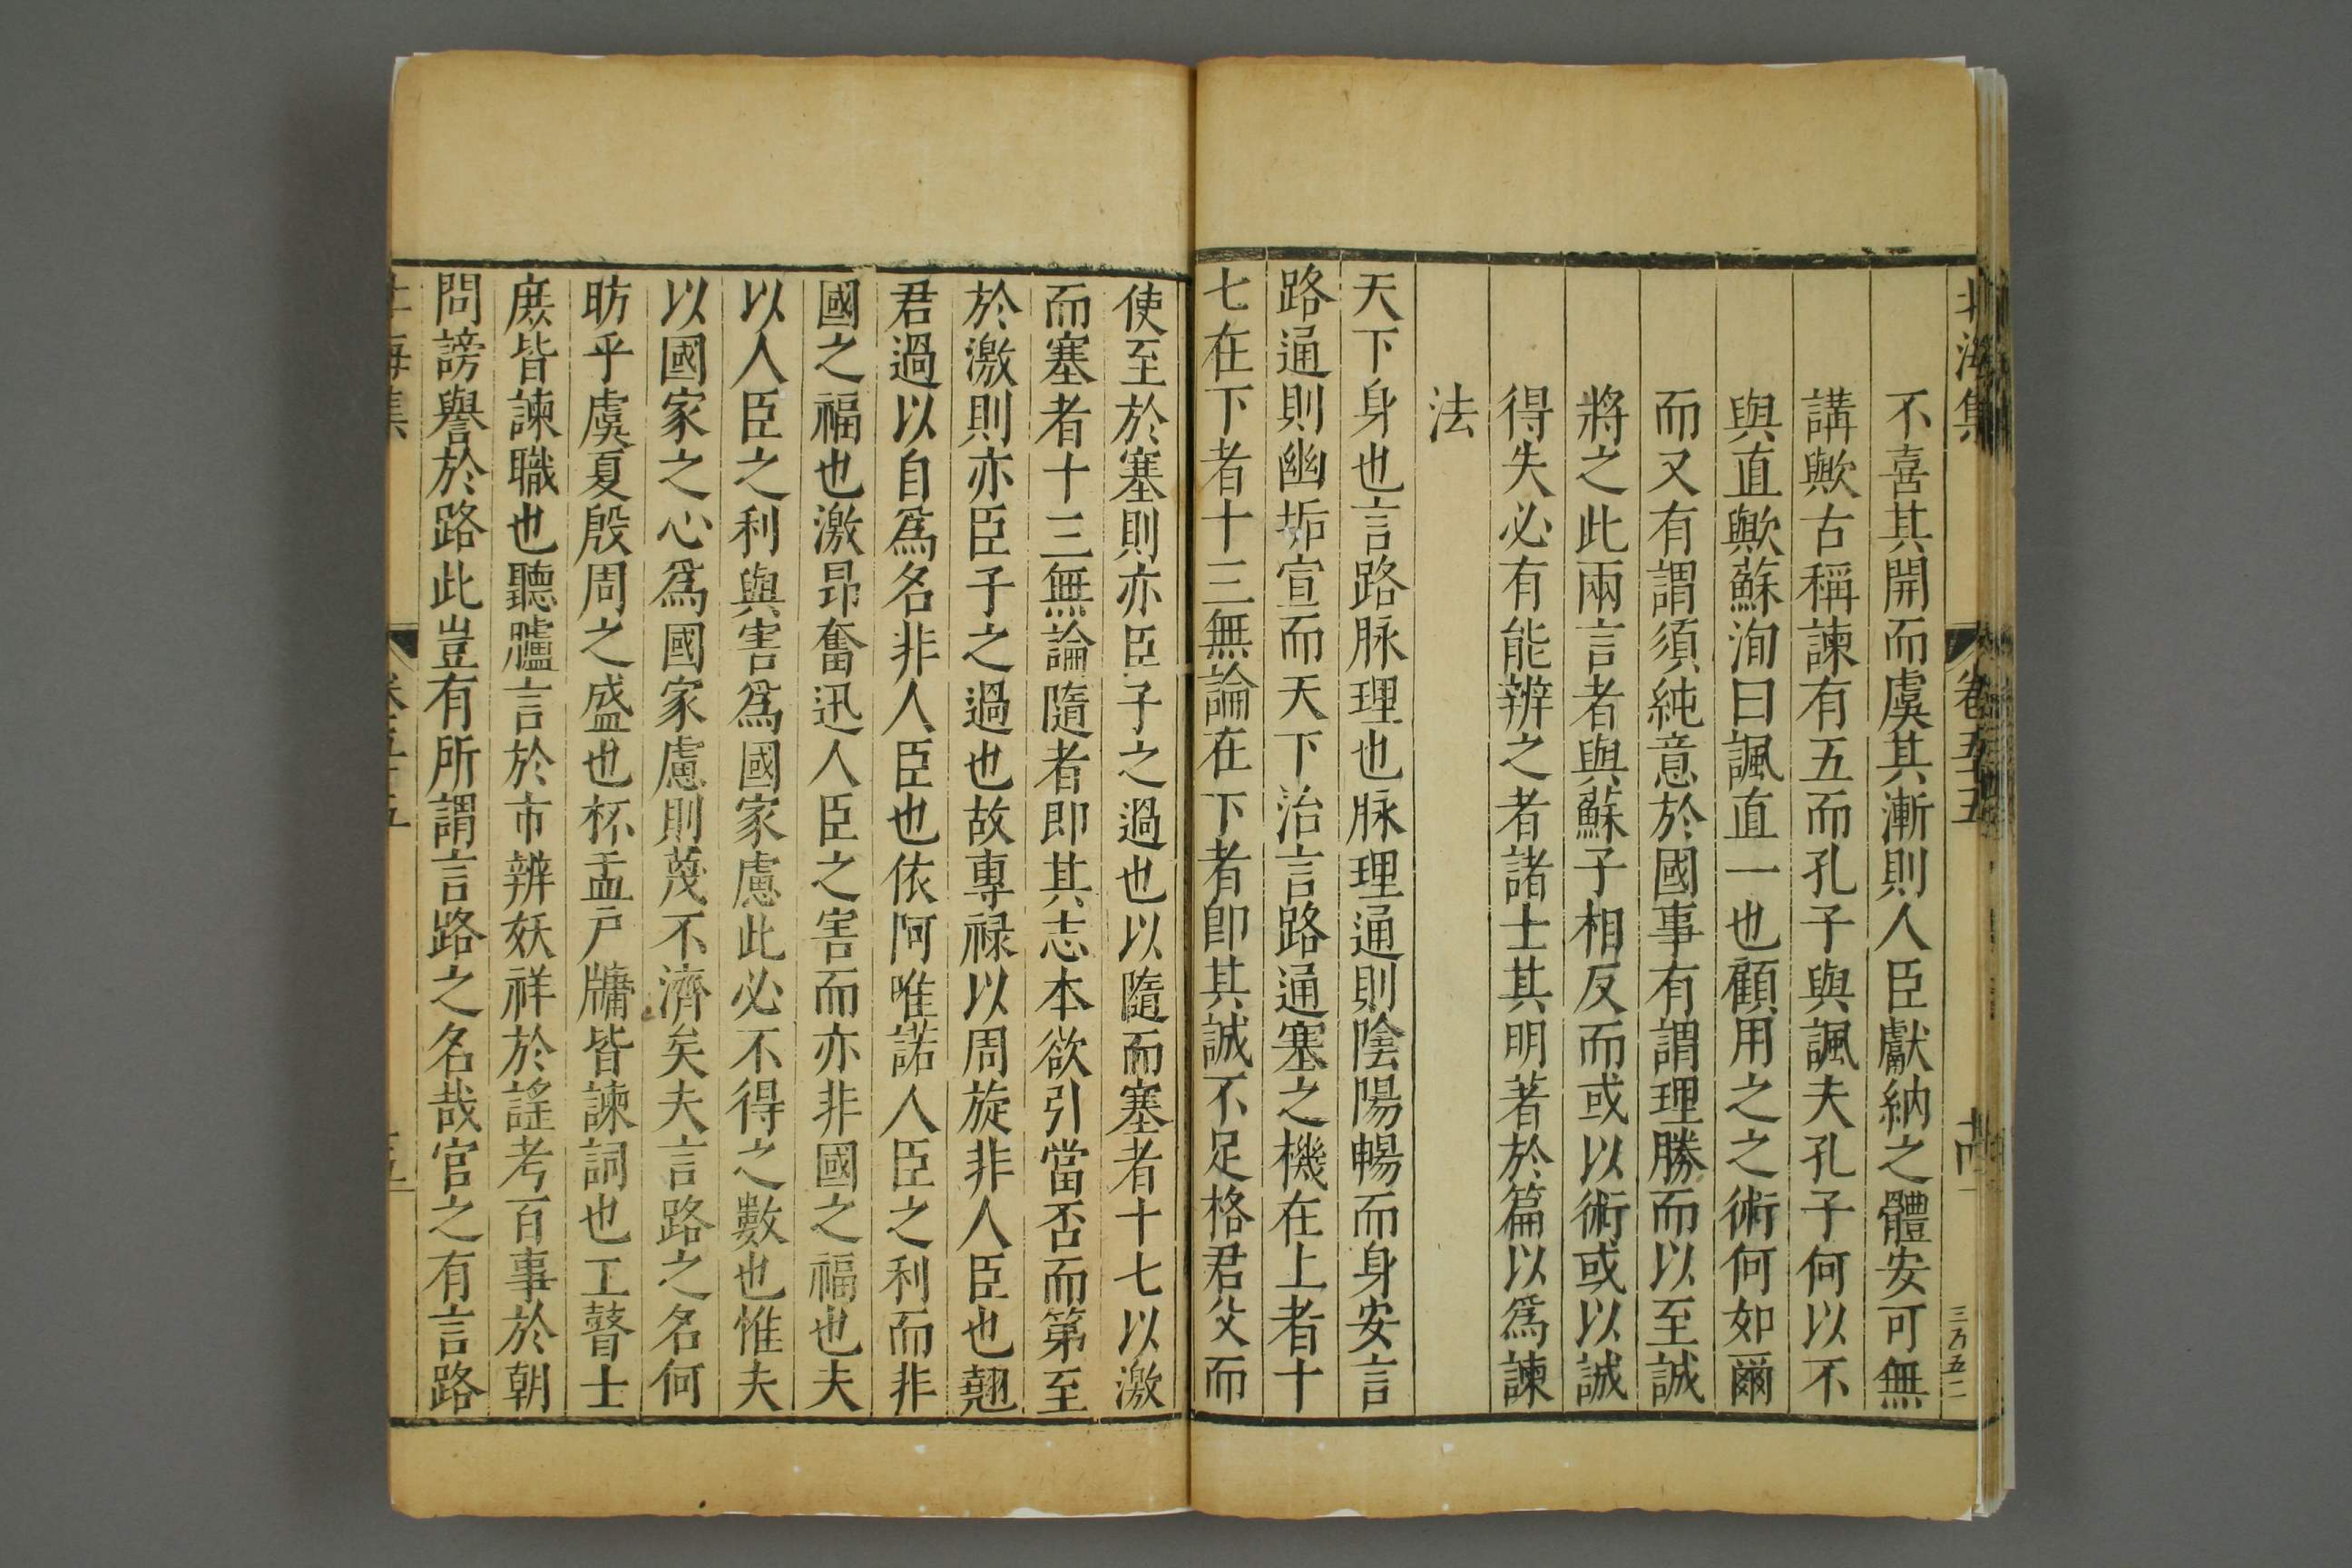 北海集 卷五五 十四 三百五二
不喜其開而虞其漸則人臣獻納之體安可無
講歟古稱諫有五而孔子與諷夫孔子何以不
與直歟蘇洵曰諷直一也顧用之之術何如爾
而又有謂須純意於國事有謂理勝而以至誠
將之此兩言者與蘇子相反而或以術或以誠
得失必有能辨之者諸士其明著於篇以爲諫
法
天下身也言路脉理也脉理通則陰陽暢而身安言
路通則幽垢宣而天下治言路通塞之機在上者十
七在下者十三無論在下者卽其誠不足格君父而
使至於塞則亦臣子之過也以隨而塞者十七以激
而塞者十三無論隨者卽其志本欲引當否而第至
於激則亦臣子之過也故專祿以周旋非人臣也翹
君過以自爲名非人臣也依阿唯諾人臣之利而非
國之福也激昂奮迅人臣之害而亦非國之福也夫
以人臣之利與害爲國家慮此必不得之數也惟夫
以國家之心爲國家慮則蔑不濟矣夫言路之名何
昉乎虞夏殷周之盛也杯盂戶牖皆諫詞也工瞽士
庶皆諫職也聽臚言於市辨妖祥於謠考百事於朝
問謗譽於路此豈有所謂言路之名哉官之有言路